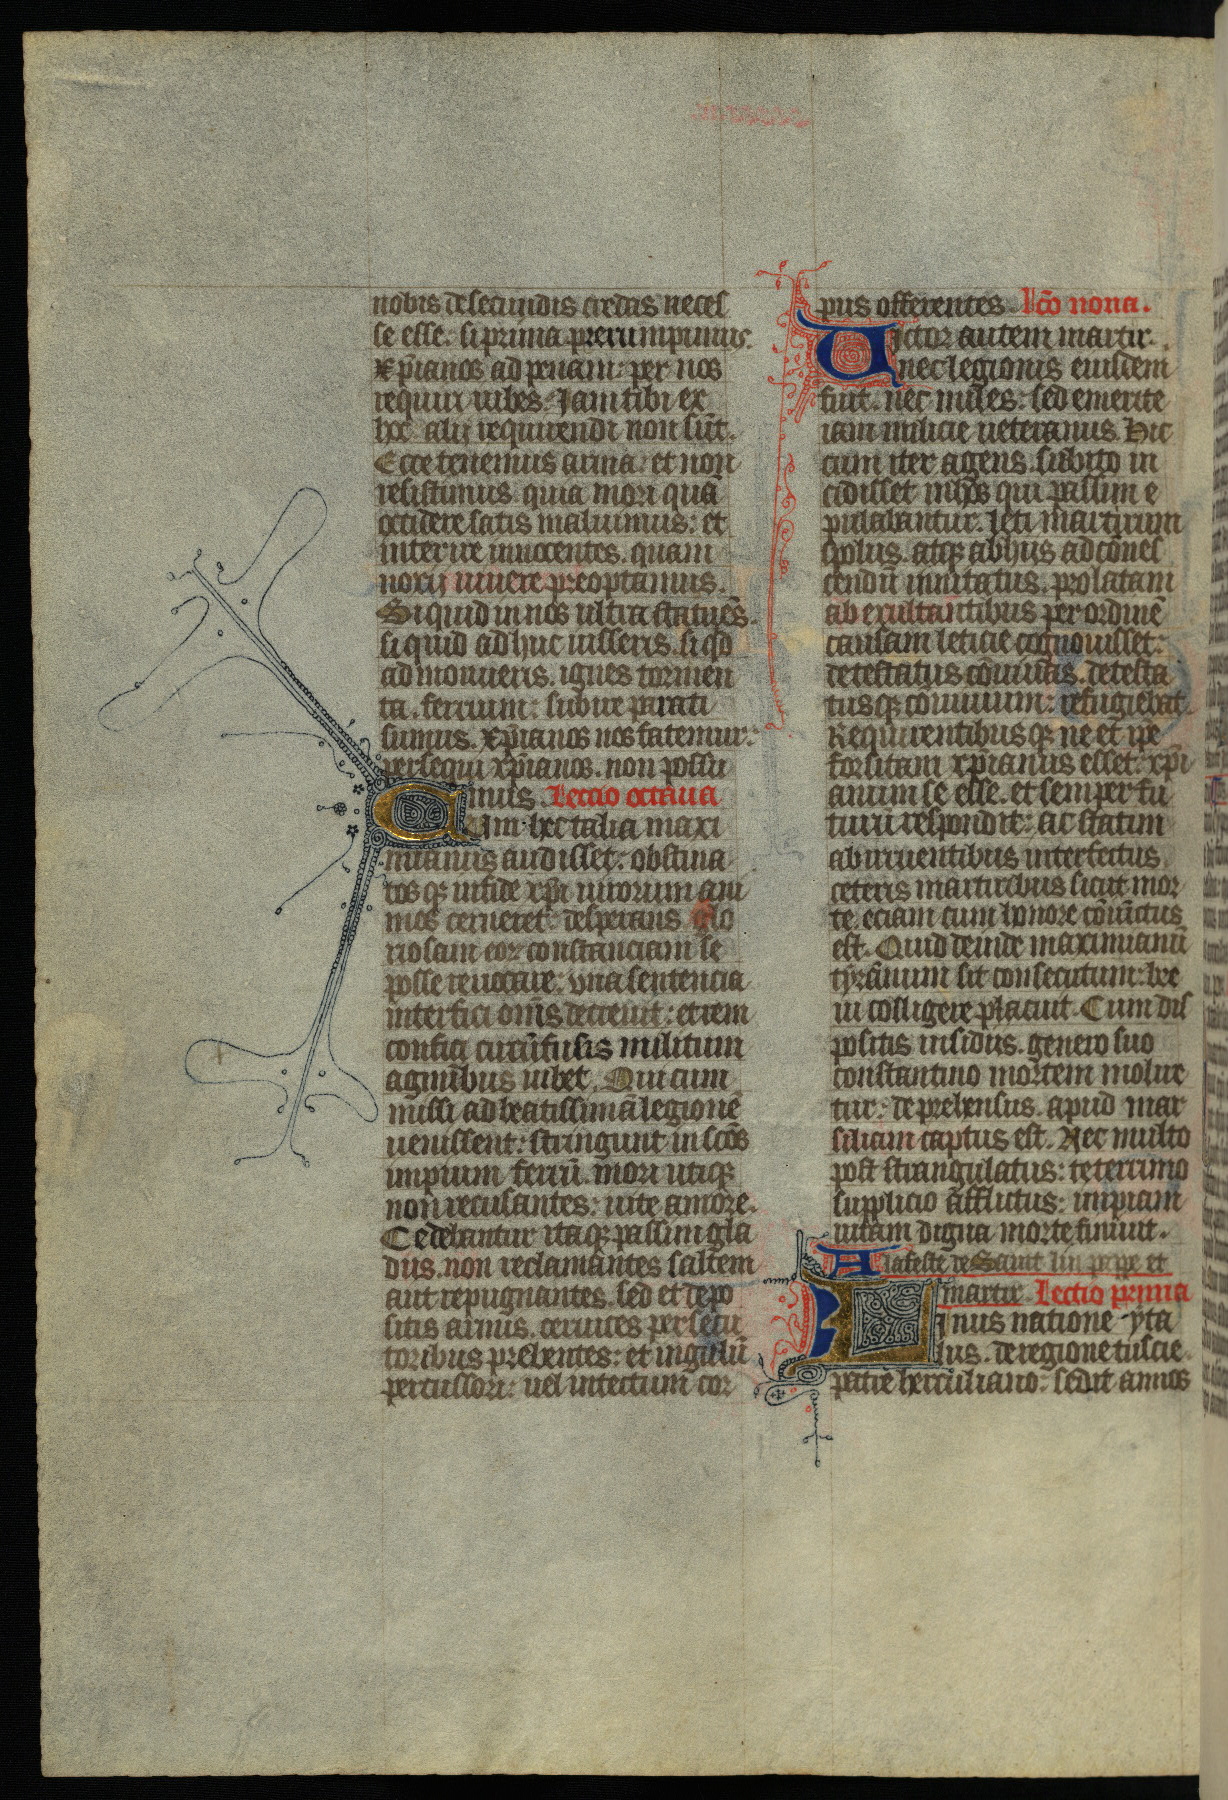 nobis de secundis credas neces
se esse: si prima prerumpimus.
Xp̄ianos ad penam: per nos
requiri iubes. Iam tibi ex
hoc alii requirendi non sūt.
Ecce tenemus arma: et non
resistimus. quia mori quā
occidere satis maluimus: et
interire innocentes. quam
noxii uiuere preoptamus.
Si quid in nos ultra statuēs.
si quid adhuc iusseris. si qd
admoueris. ignes tormen
ta. ferrum: subire parati
sumus. Xp̄ianos nos fatemur:
persequi xp̄ianos. non possu
mus. Lectio octaua
Cum hec talia maxi
mianus audisset: obstina
tos qȝ in fide xp̄i uirorum ani
mos cerneret: desperans glo
riosam eoꝝ constanciam se
posse reuocare: vna sentencia
interfici om̄s decreuit: et rem
confici circūfusis militum
agminibus iubet. Qui cum
missi ad beatissimā legionē
uenissent: stringunt in sc̄os
impium ferrū. mori utiqȝ
non recusantes: uite amore.
Cedebantur itaqȝ passim gla
diis. non reclamantes saltem
aut repugnantes. sed et depo
sitis armis. ceruices persecu
toribus prebentes: et iugulū
percussori: uel intectum cor
pus offerentes. Lc̄o nona.
Victor autem martir.
nec legionis eiusdem
fuit. nec miles: sed emerite
iam milicie ueteranus. Hic
cum iter agens. subito in
cidisset in hos qui passim e
pulabantur. leti martirum
spoliis. atqȝ ab hiis ad cōues
cendū inuitatus. prolatam
ab exultantibus per ordinē
causam leticie cognouisset:
detestatus cōuiuas. detesta
tusqȝ conuiuium: refugiebat.
Requirentibusqȝ ne et ip̄e
forsitam xp̄ianus esset: xp̄i
anum se esse. et semper fu
turū respondit: ac statim
ab irruentibus interfectus
ceteris martiribus sicut mor
te. eciam cum honore cōiūctus
est. Quid deinde maximianū
tyrānum sit consecutum: bre
ui colligere placuit. Cum dis
positis insidiis. genero suo
constantino mortem molire
tur: deprehensus. apud mar
siliam captus est. Nec multo
post strangulatus: teterrimo
supplicio afflictus: impiam
uitam digna morte finiuit.
A la feste de Saint lin pape et
martir. Lectio prima
Linus natione yta
lus. de regione tuscie.
patre herculiano: sedit annos